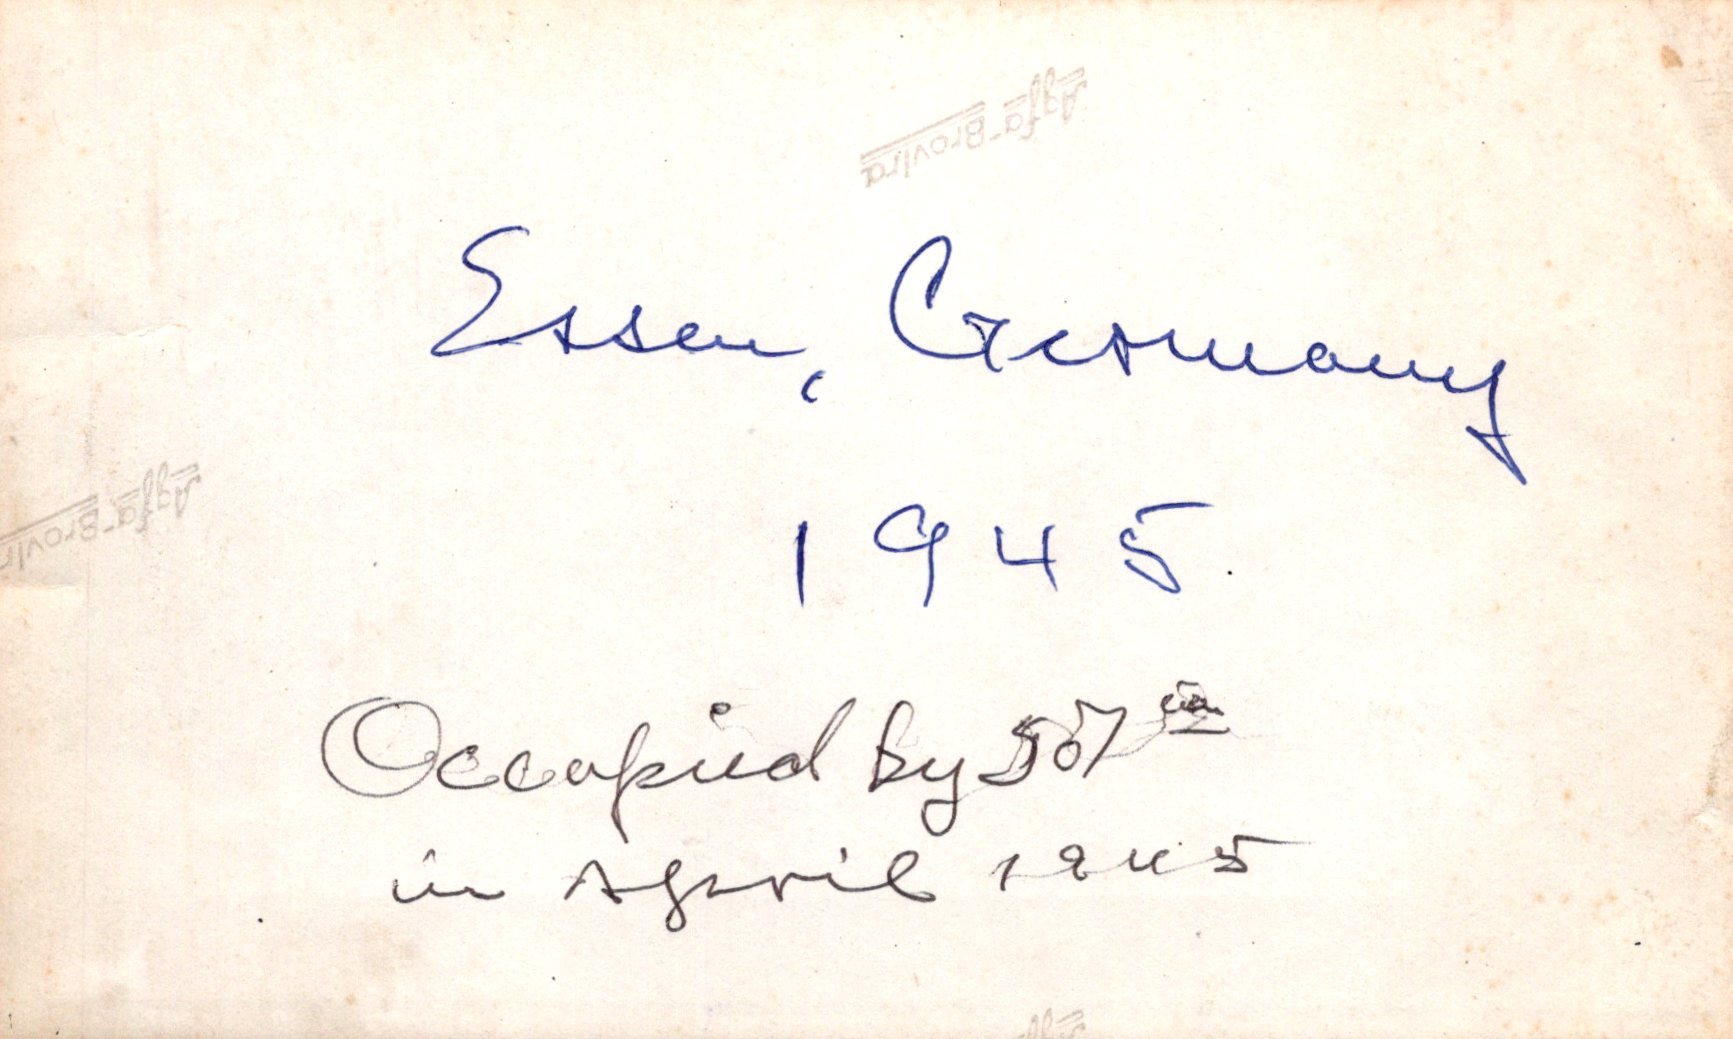 Agfa-Brovira
Essen, Germany
1945
Agfa-Brovira
Occupied by 507
in April 1945